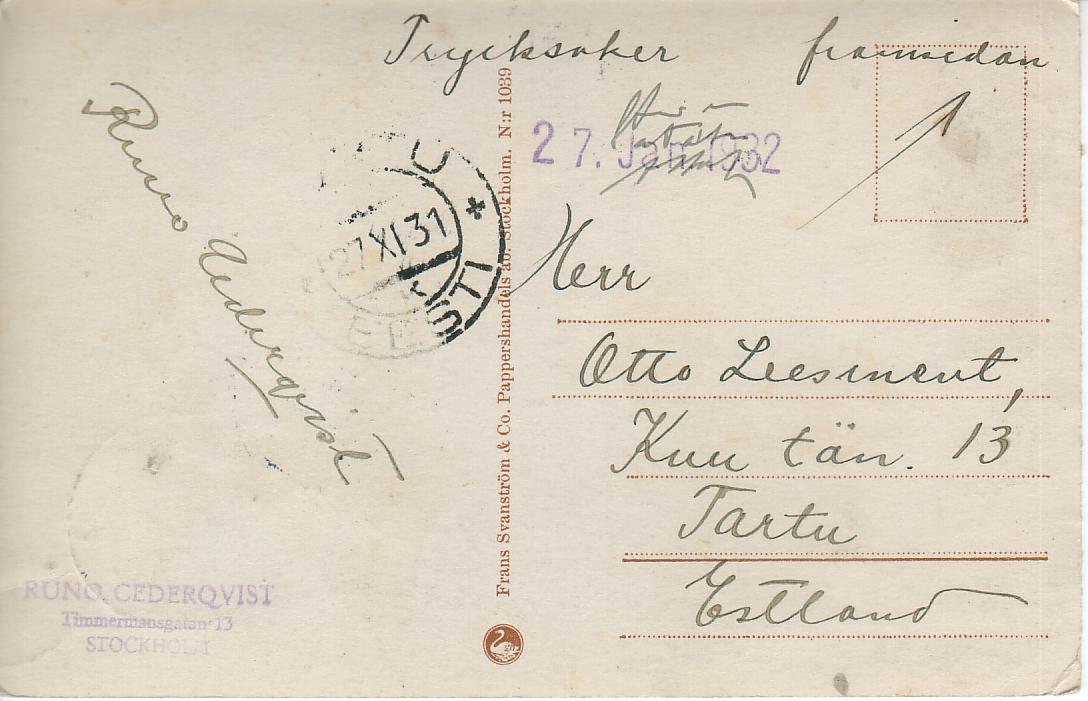 Trycksaker framsidan
27. Jan 1932
Runo Cederqvist
U * EESTI
27 XI 31
Frans Svanström & Co. Pappershandels ab. Stockholm. N:r 1039
Herr
Otto Leesment,
Kuu tän. 13
Tartu
Estland
RUNO CEDERQVIST
Timmermansgatan 13
STOCKHOLM